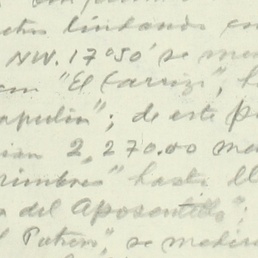 lindando en
NW. 17°50' se me
"El Carrizo", h
apulin"; de este p
2,270.00 me
rimbres" hasta ll
del Aposentillo";
l Potrero", se medira